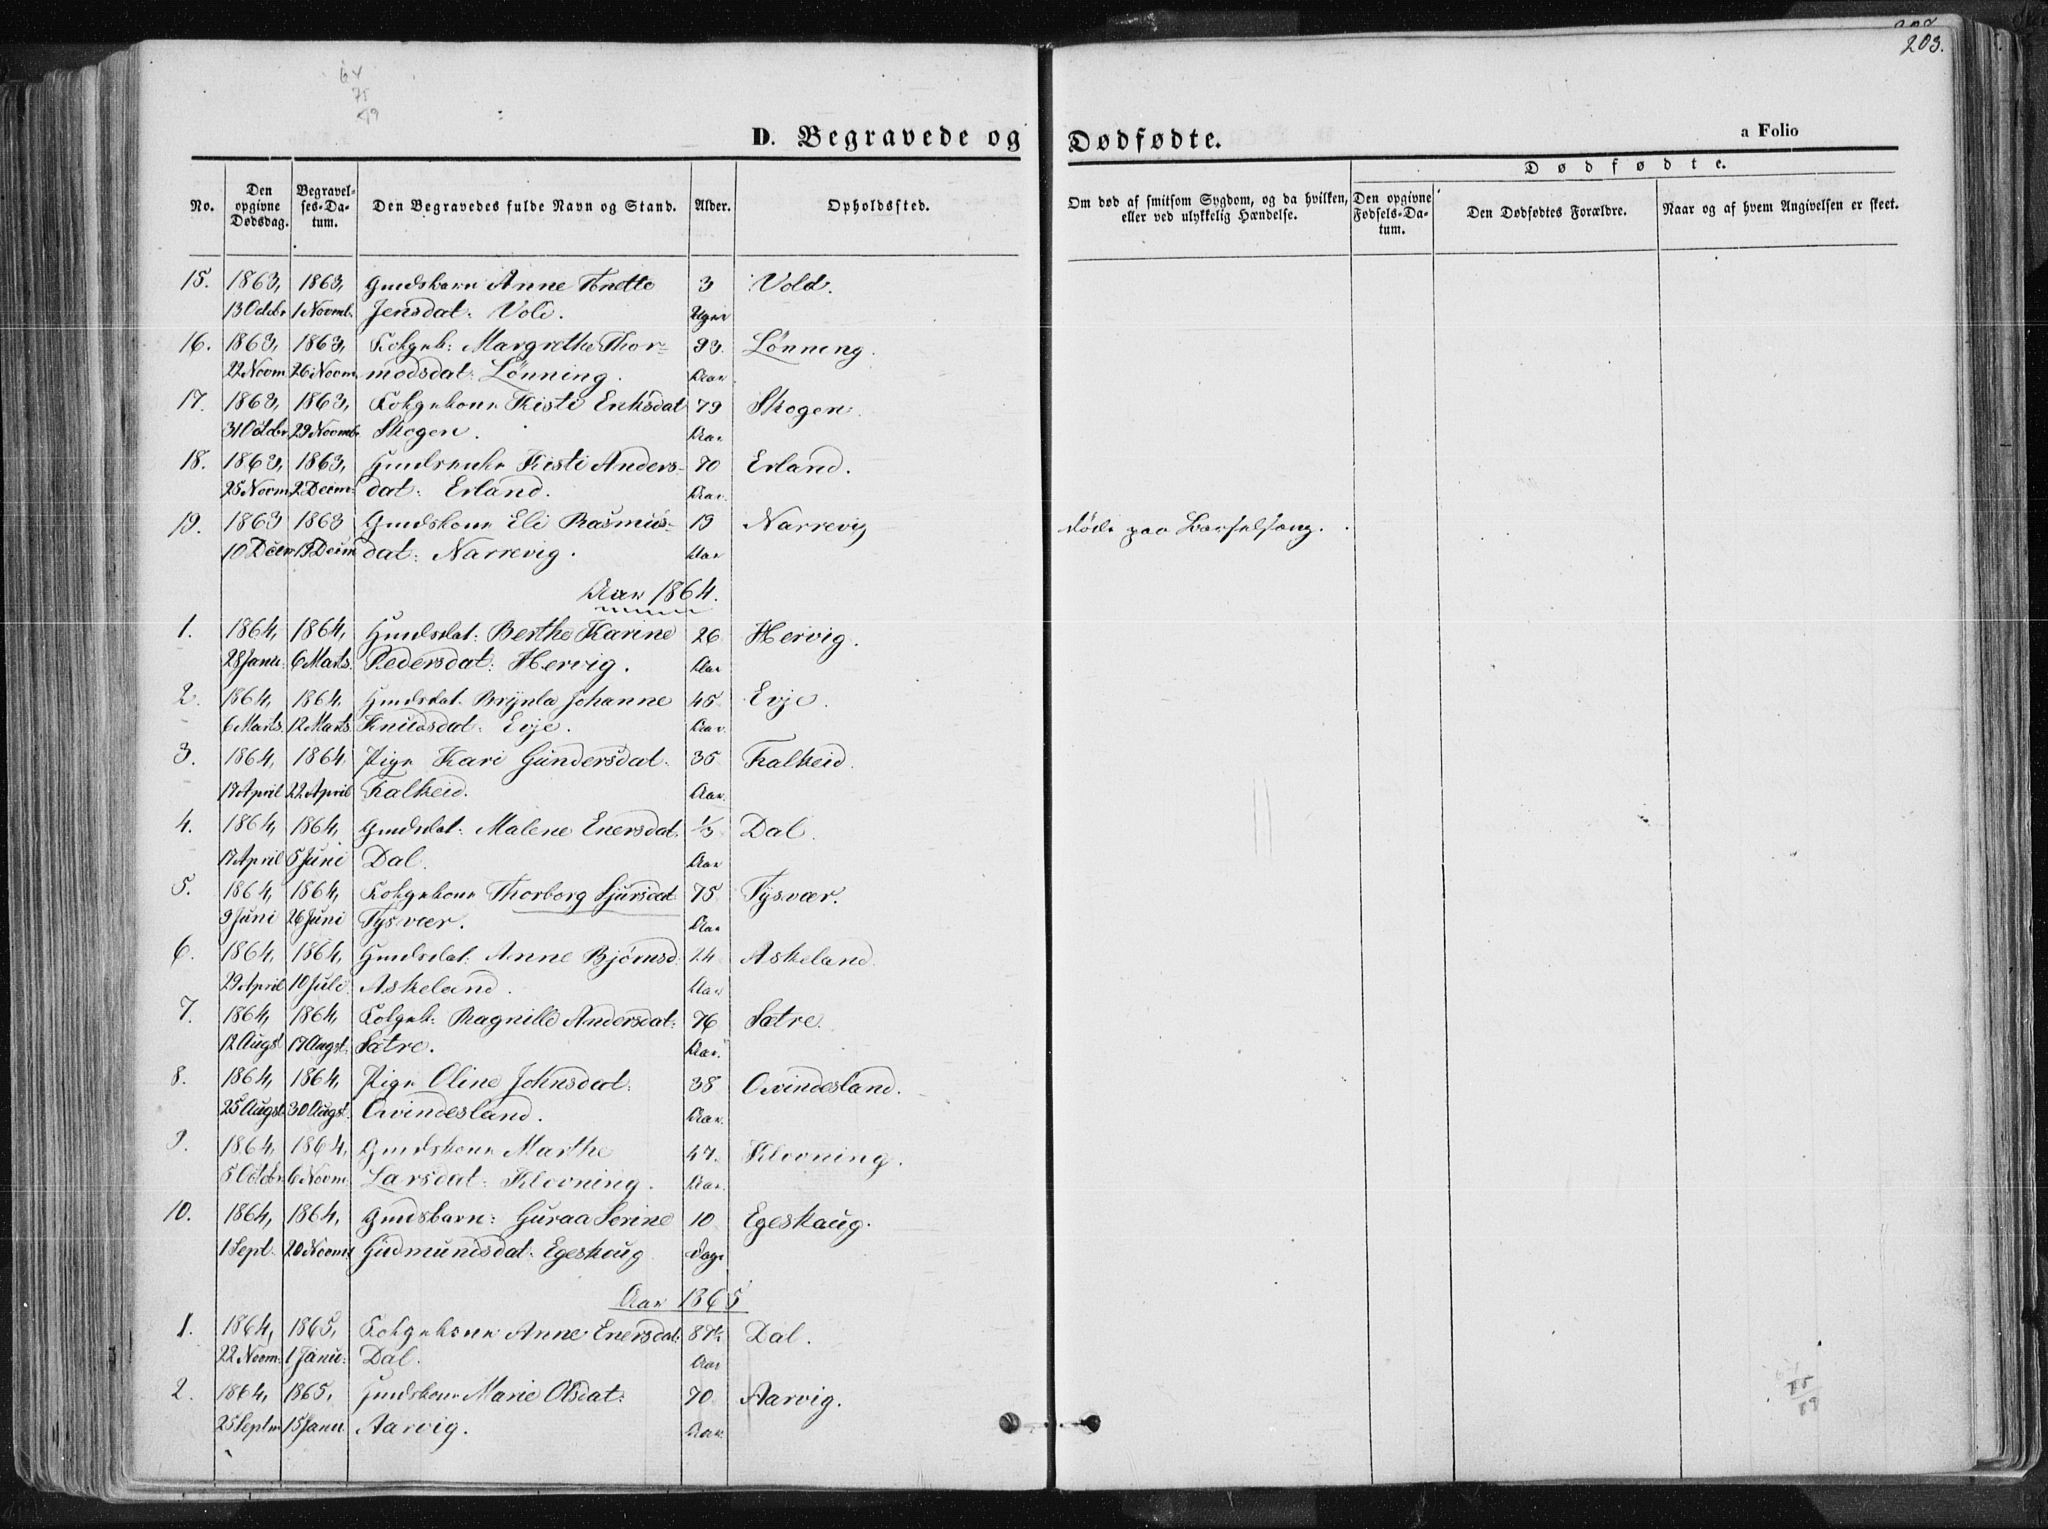 203.
64
75
89
D. Begravede og Dødfødte.
a Folio
No.
Den opgivne Dødsdag.
Begravelses-Datum.
Den Begravedes fulde Navn og Stand.
Alder.
Opholdssted.
Om død af smitsom Sygdom, og da hvilken, eller ved ulykkelig Hændelse.
Dødfødte.
Den opgivne Fødsels-Datum.
Den Dødfødtes Forældre.
Naar og af hvem Angivelsen er skeet.
15. 1863, 1863, Gmdsbarn Anne Tonette 3 Vold.
13 Octbr 1 Novmb. Jensdat: Vold. Uger
16. 1863, 1863, Folgek: Margrethe Thor- 93. Lønning.
22 Novm 26 Novm modsdat: Lønning. Aar.
17. 1863, 1863, Folgekone Kisti Eriksdat 79 Skogen.
31 Octbr 29 Novmb. Skogen. Aar
18. 1863, 1863, Gmdsenke Kisti Anders- 70 Erland.
25 Novm 2 Decm. dat: Erland. Aar.
19. 1863 1863 Gmdskone Eli Rasmus- 19 Narrevig døde paa Barselseng.
10 Decm 19 Decm dat: Narrevig. Aar
Aar 1864.
1. 1864, 1864, Gmdsdat: Berthe Karine 26 Hervig.
28 Janu: 6 Marts. Pedersdat: Hervig. Aar
2. 1864, 1864, Gmdsdat. Brynla Johanne 45 Evje.
6 Marts. 12 Marts Knudsdat: Evje. Aar.
3. 1864, 1864, Pige Kari Gundersdat. 35 Falkeid.
17 April 22 April Falkeid. Aar.
4. 1864, 1864, Gmdsdat: Malene Enersdat. 1/3 Dal.
17 April 5 Juni Dal. Aar
5. 1864, 1864, Folgekone Thorborg Sjursdat 75 Tysvær.
9 Juni 26 Juni Tysvær. Aar
6. 1864, 1864, Gmdsdat: Anne Bjørnsd. 24 Askeland.
29 April 10 Juli. Askeland. Aar
7. 1864, 1864, Folgek: Ragnild Andersdat: 76 Sætre.
12 Augst 17 Augst. Sætre. Aar.
8. 1864, 1864, Pige Oline Johnsdat. 38 Qvindesland.
25 Augst. 30 Augst. Qvindesland. Aar.
9. 1864, 1864, Gmdskone Marthe 47. Klovning.
5 Octbr 6 Novm. Larsdat: Klovning. Aar.
10. 1864, 1864, Gmdsbarn: Guraa Serine 10 Egeskaug.
1 Sept. 20 Novm Gudmundsdat: Egeskoug Dage
Aar 1865
1. 1864, 1865, Folgekone Anne Enersdat: Dal.
22 Novm. 1 Janu: Dal. Aar
2. 1864, 1865, Gmdskone Marie Olsdat: 70 Aarvig.
25 Septm 15 Janu Aarvig. Aar.